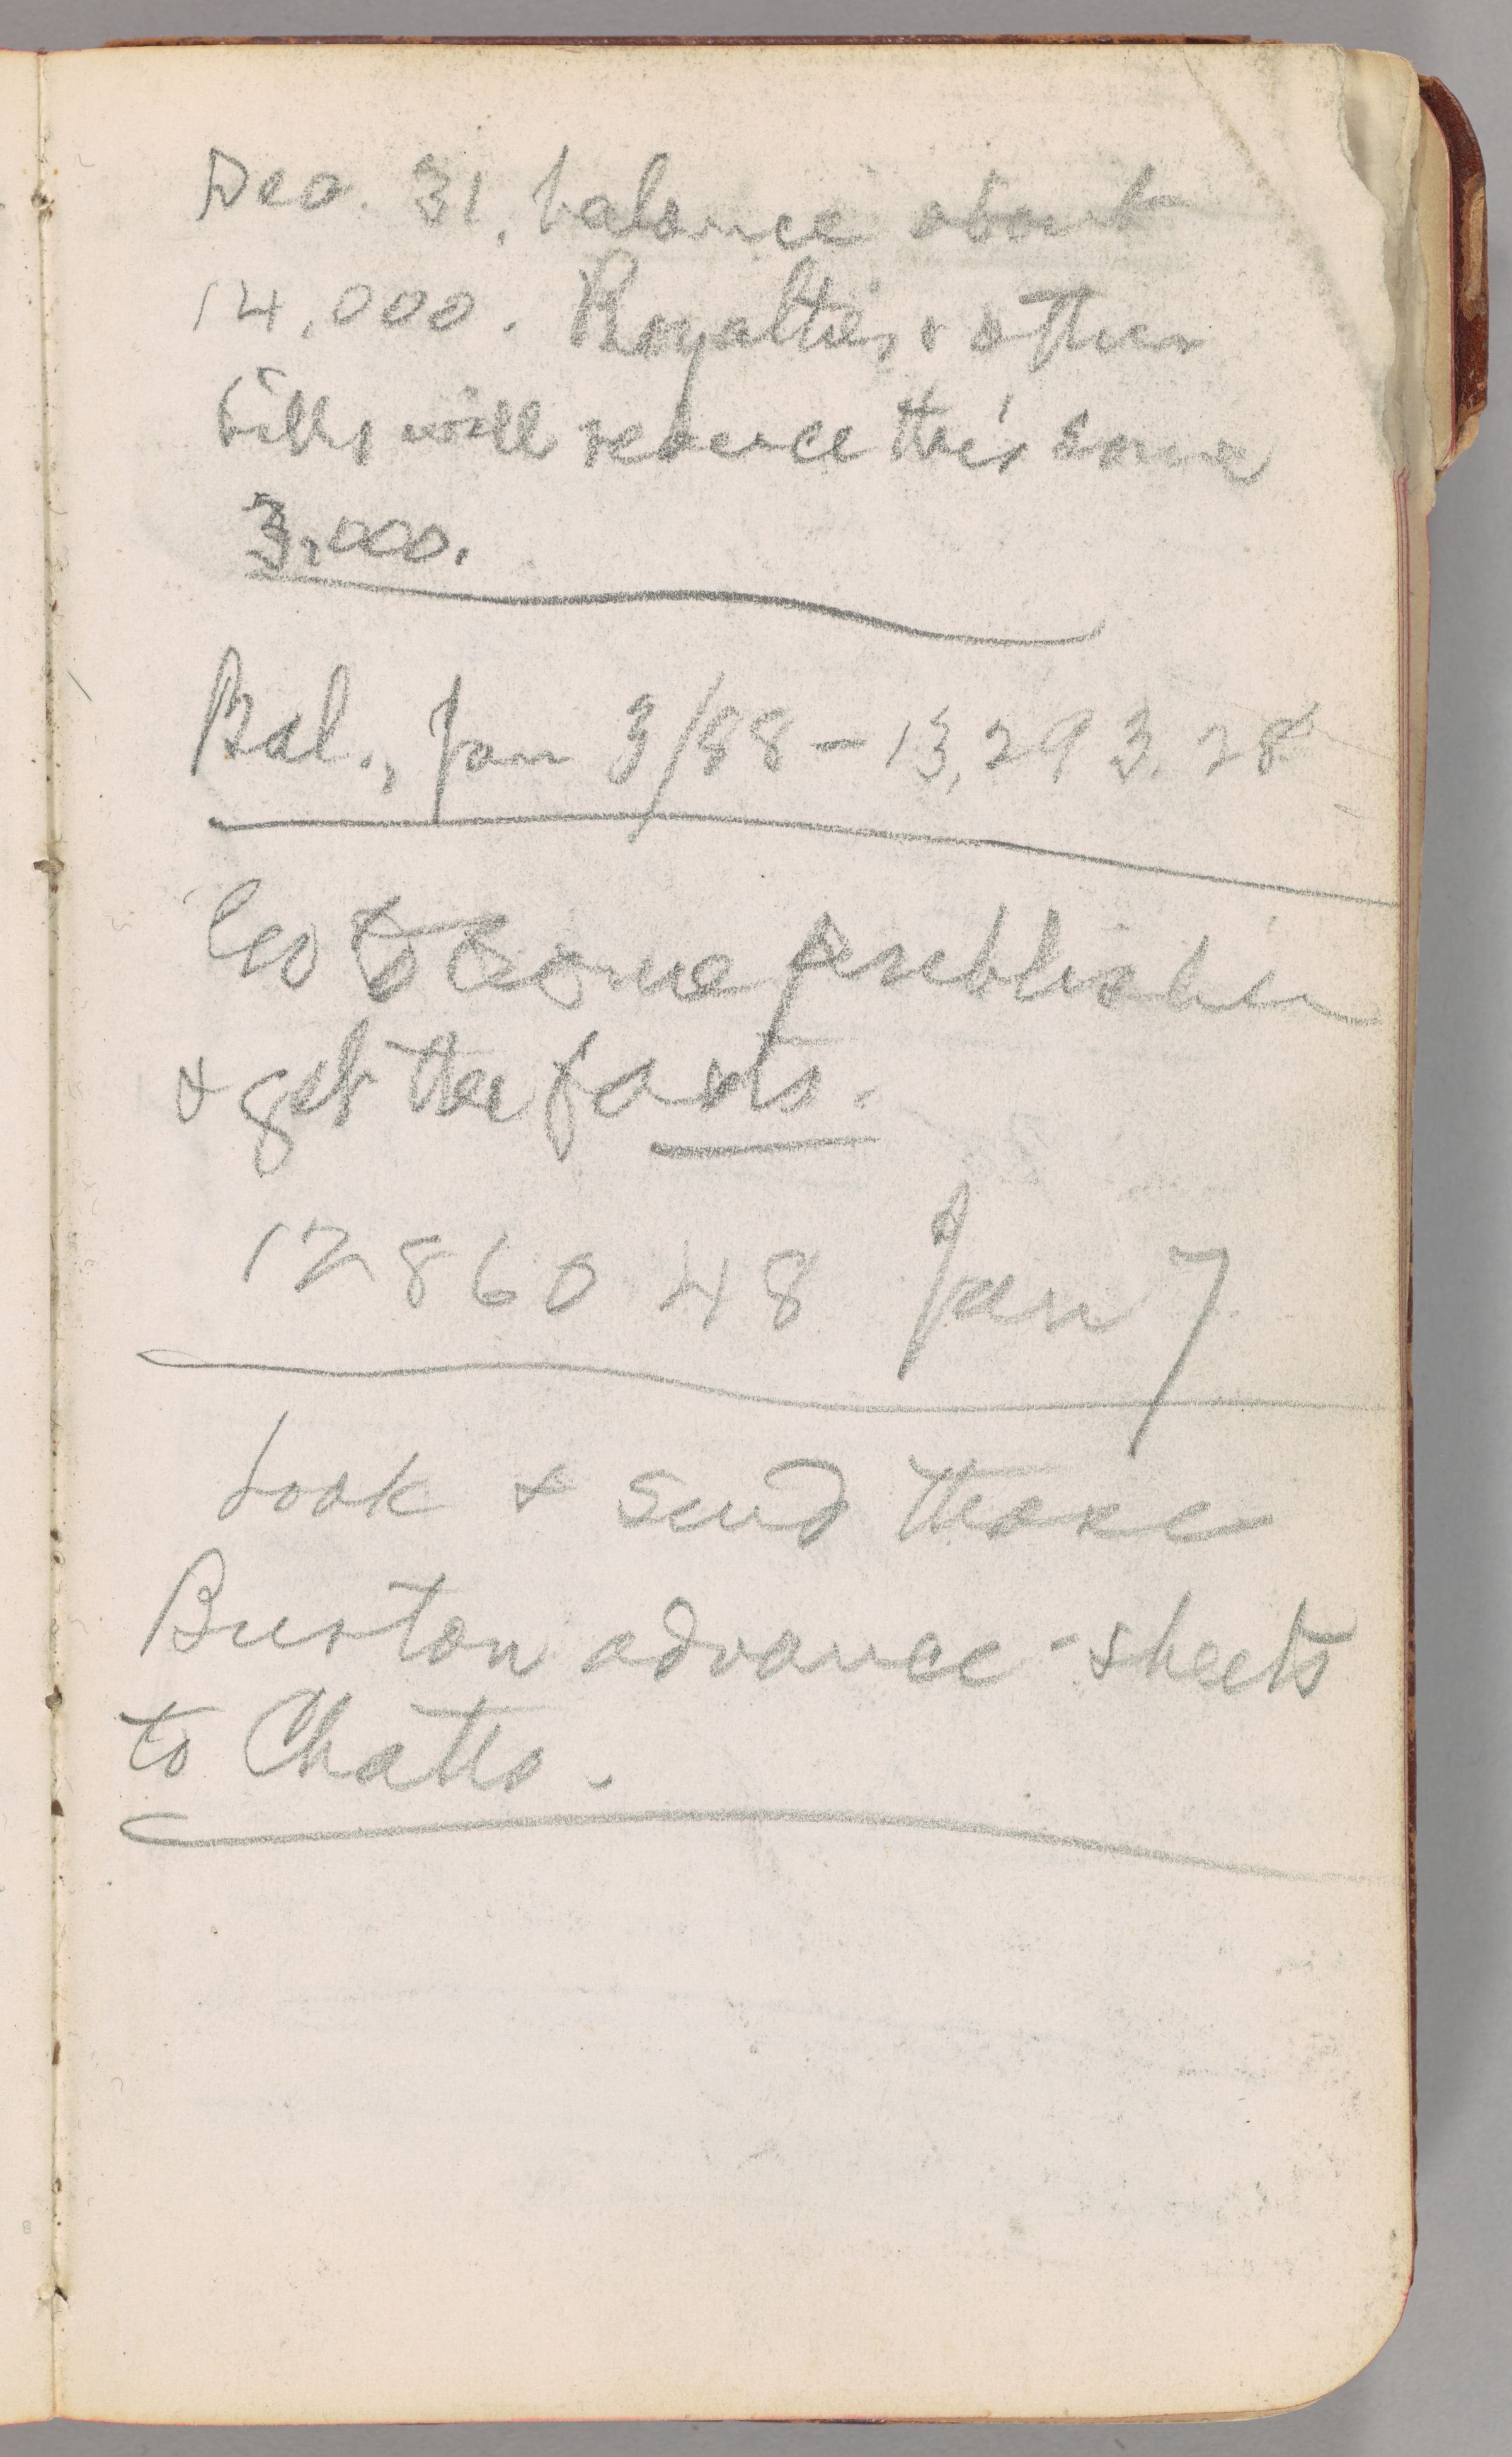 Dec. 31, balance about
14,000. Royalties & other
bills will reduce this some
3,000.
Bal., Jan 3/88 — 13,293.28
Go to some publisher
& get the facts.
12860 48 Jan 7
Look & send those
Burton advance-sheets
to Chatto.